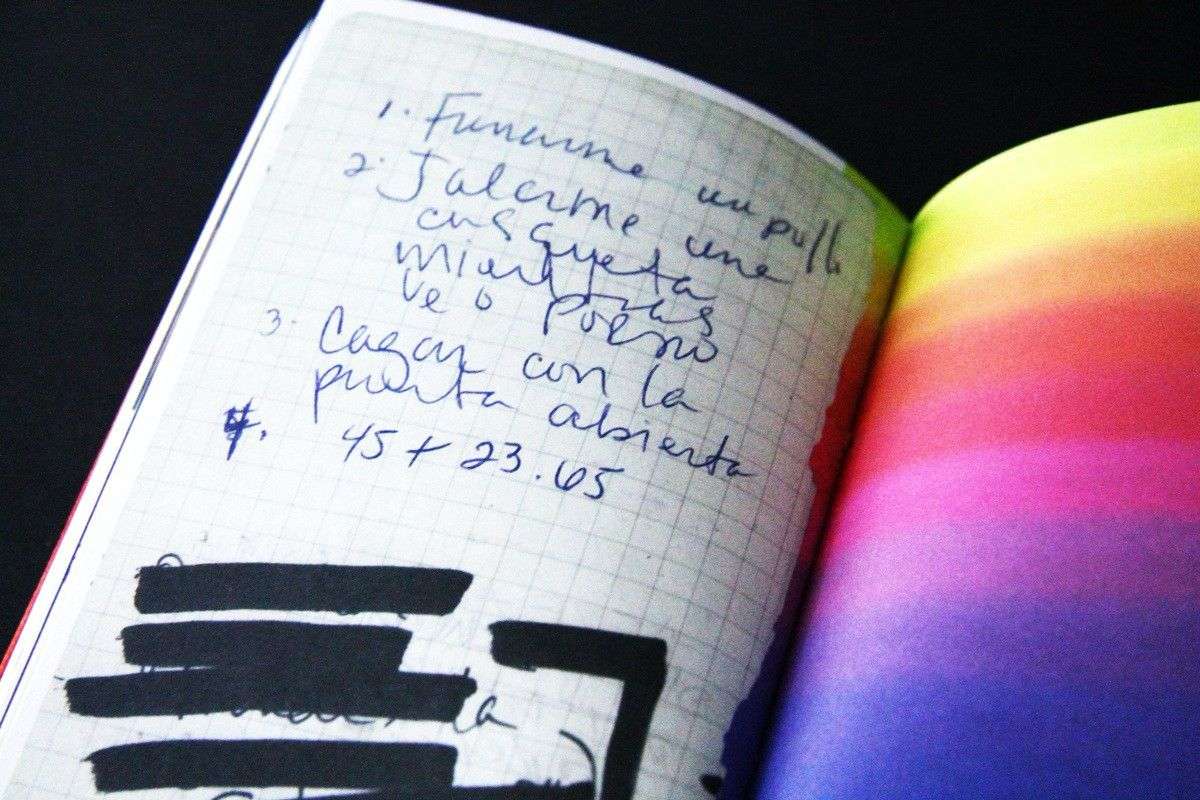 1. Funarme un pullo
2. Jalarme una
cusqueta
mientras
veo porno
3. Cagar con la
puerta abierta
4. 45 + 23.65
la